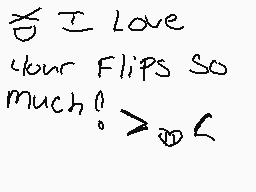 XD I Love
Your Flips so
much! >♡<